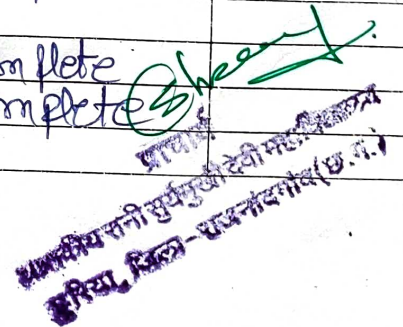 mplete
mplete
प्राचार्य
शासकीय रानी सुर्यमुखी देवी महाविद्यालय
छुरिया, जिला-राजनांदगांव (छ.ग.)